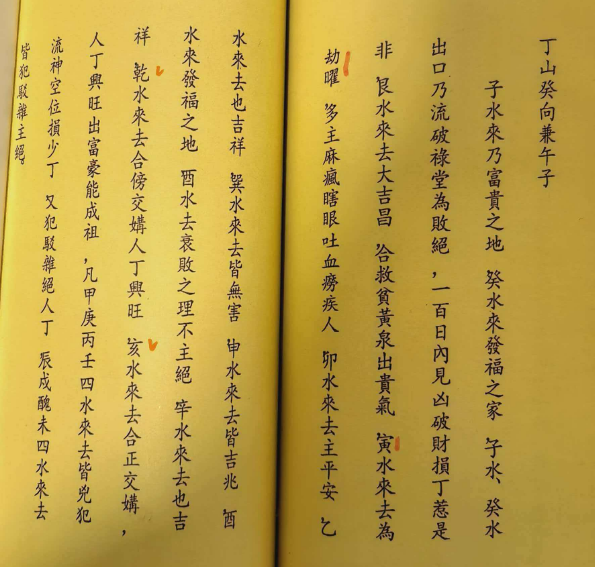 丁山癸向兼午子
子水來乃富貴之地　癸水來發福之家　子水、癸水
出口乃流破祿堂為敗絕，一百日內見凶破財損丁惹是
非　艮水來去大吉昌　合救貧黃泉出貴氣　寅水來去為
劫曜　多主麻瘋瞎眼吐血癆疾人　卯水來去主平安　乙
水來去也吉祥　巽水來去皆無害　申水來去皆吉兆　酉
水來發福之地　酉水去衰敗之理不主絕　辛水來去也吉
祥　乾水來去合傍交媾人丁興旺　亥水來去合正交媾，
人丁興旺出富豪能成祖，凡甲庚丙壬四水來去皆兇犯
流神空位損少丁　又犯駁雜絕人丁　辰戌醜未四水來去
皆犯駁雜主絕。